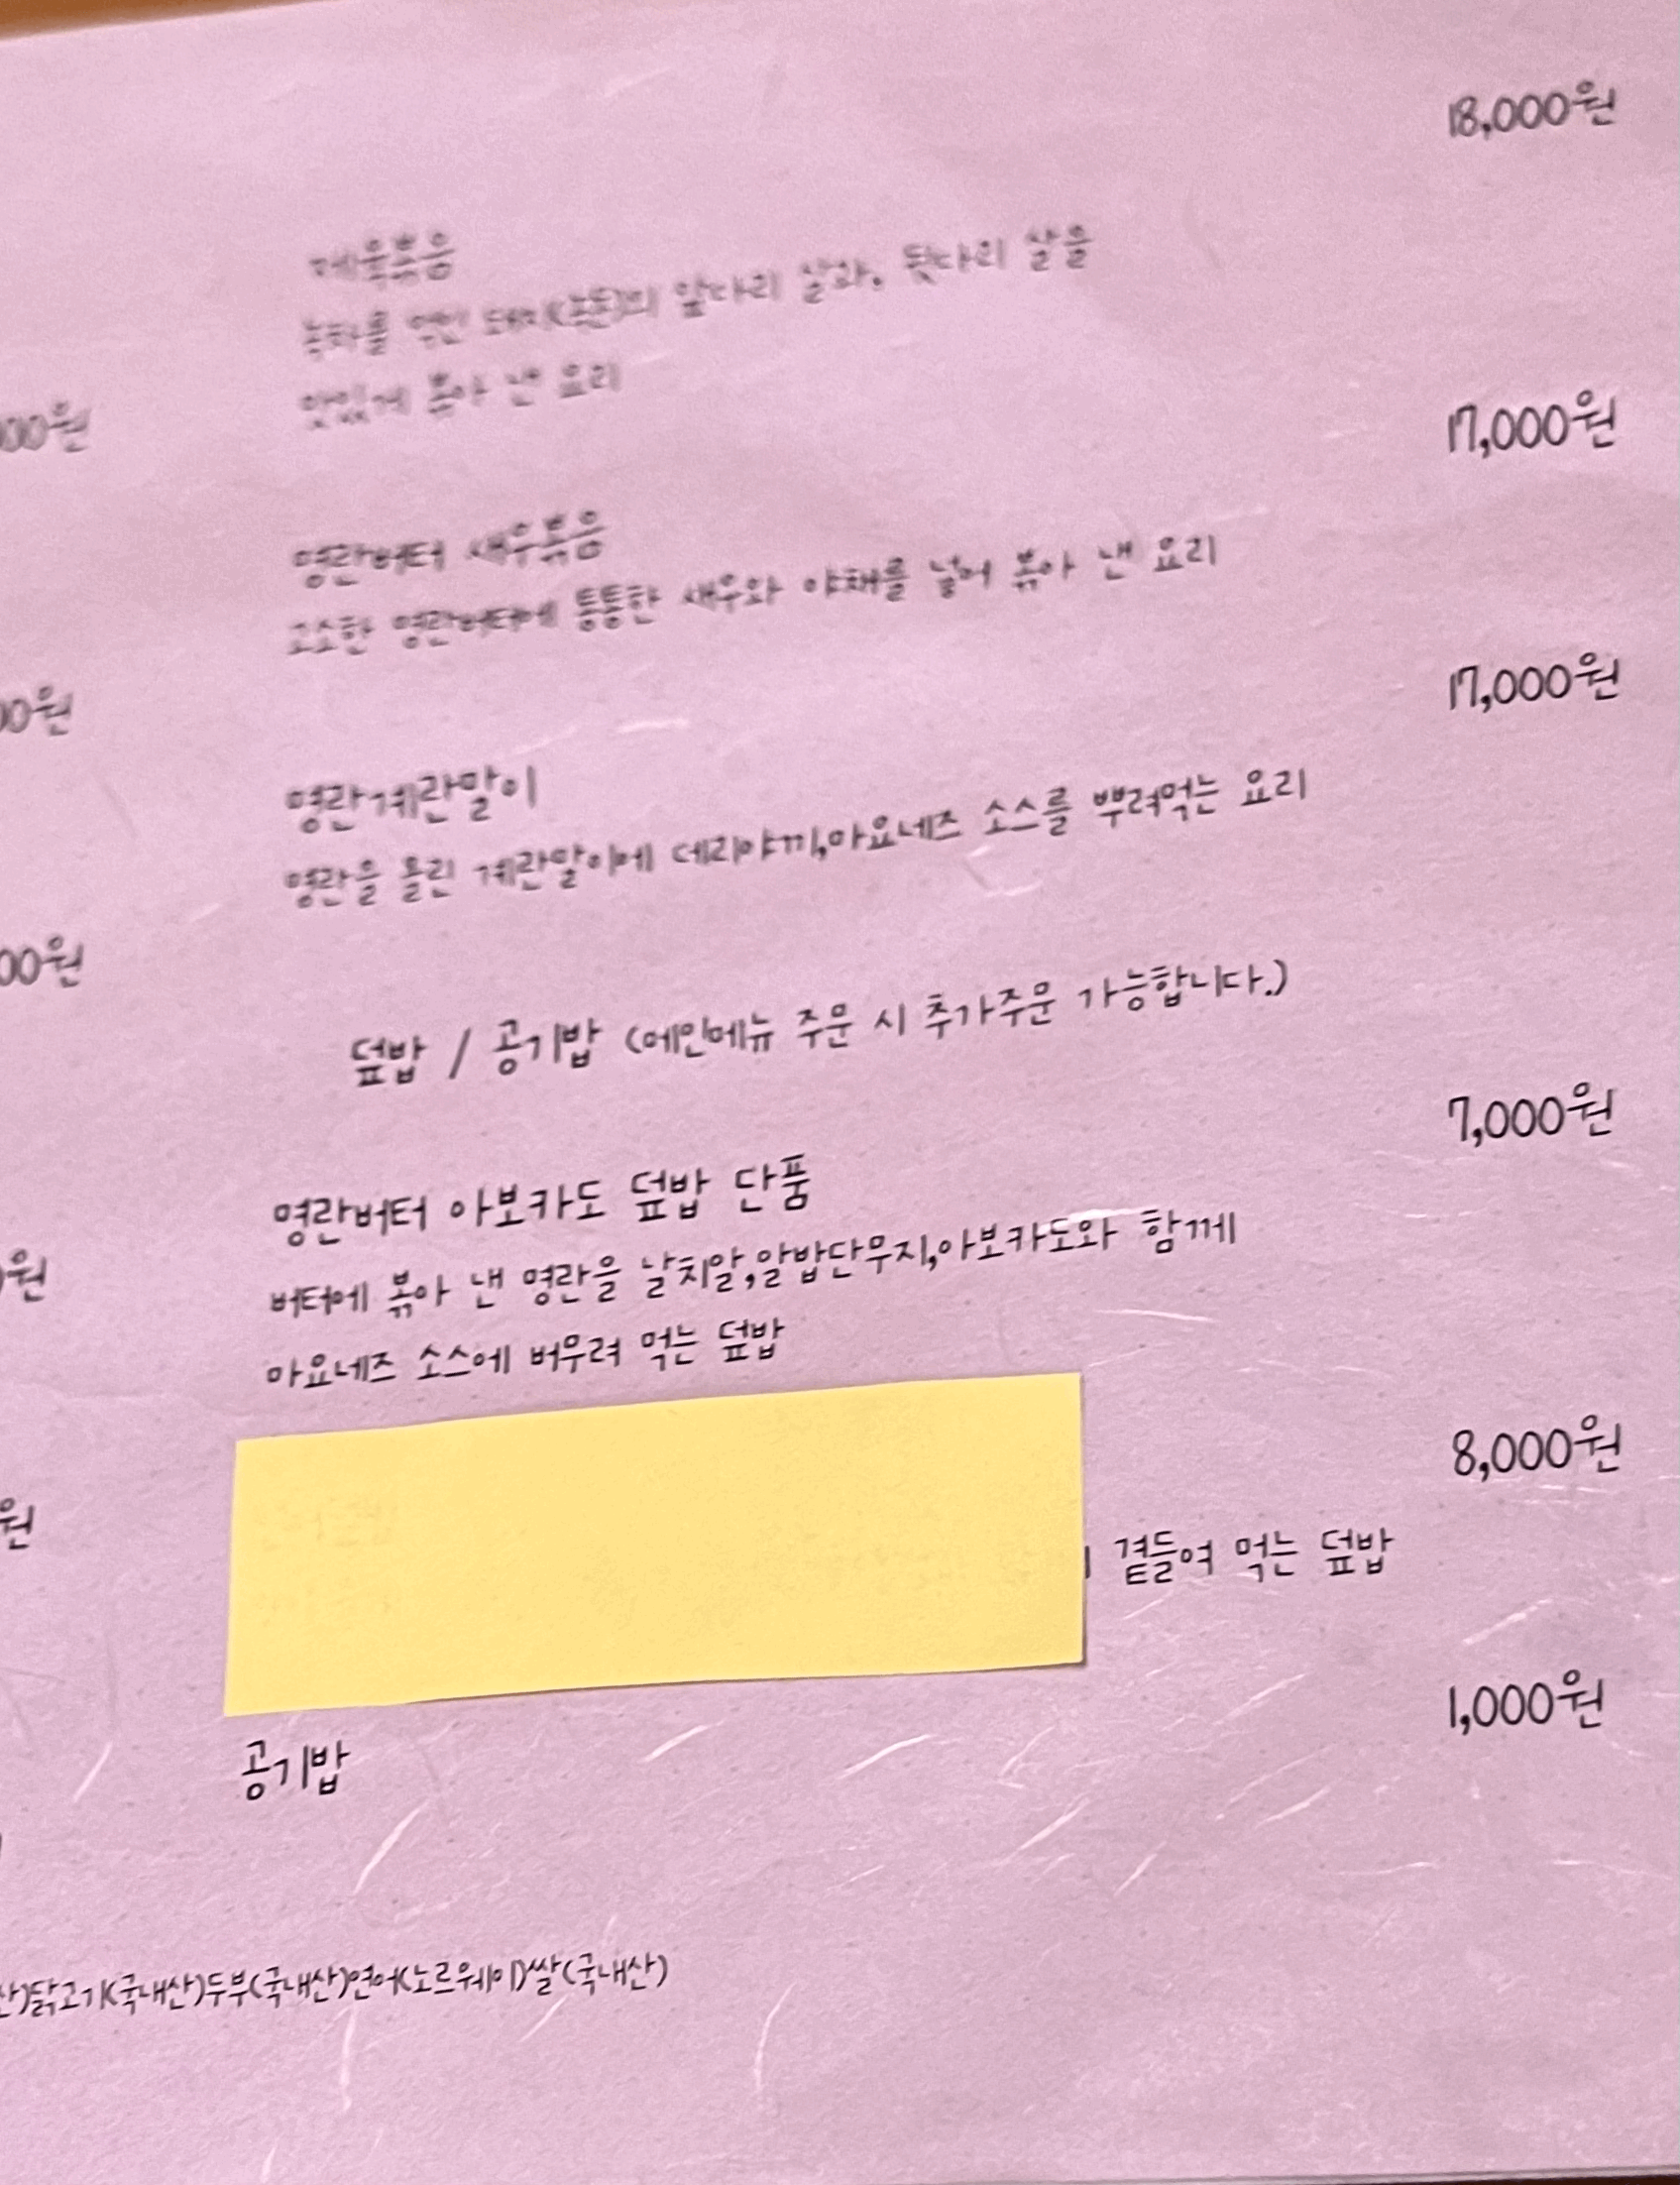 18,000원
제육볶음
녹차를 먹인 돼지(녹돈)의 앞다리 살과, 뒷다리 살을
맛있게 볶아 낸 요리
00원
17,000원
명란버터 새우볶음
고소한 명란버터에 통통한 새우와 야채를 넣어 볶아 낸 요리
00원
17,000원
명란계란말이
명란을 올린 계란말이에 데리야끼,마요네즈 소스를 뿌려먹는 요리
00원
덮밥 / 공기밥 (메인메뉴 주문 시 추가주문 가능합니다.)
7,000원
명란버터 아보카도 덮밥 단품
버터에 볶아 낸 명란을 날치알,알밥단무지,아보카도와 함께
마요네즈 소스에 버우려 먹는 덮밥
원
8,000원
곁들여 먹는 덮밥
원
1,000원
공기밥
산)닭고기(국내산)두부(국내산)연어(노르웨이)쌀(국내산)